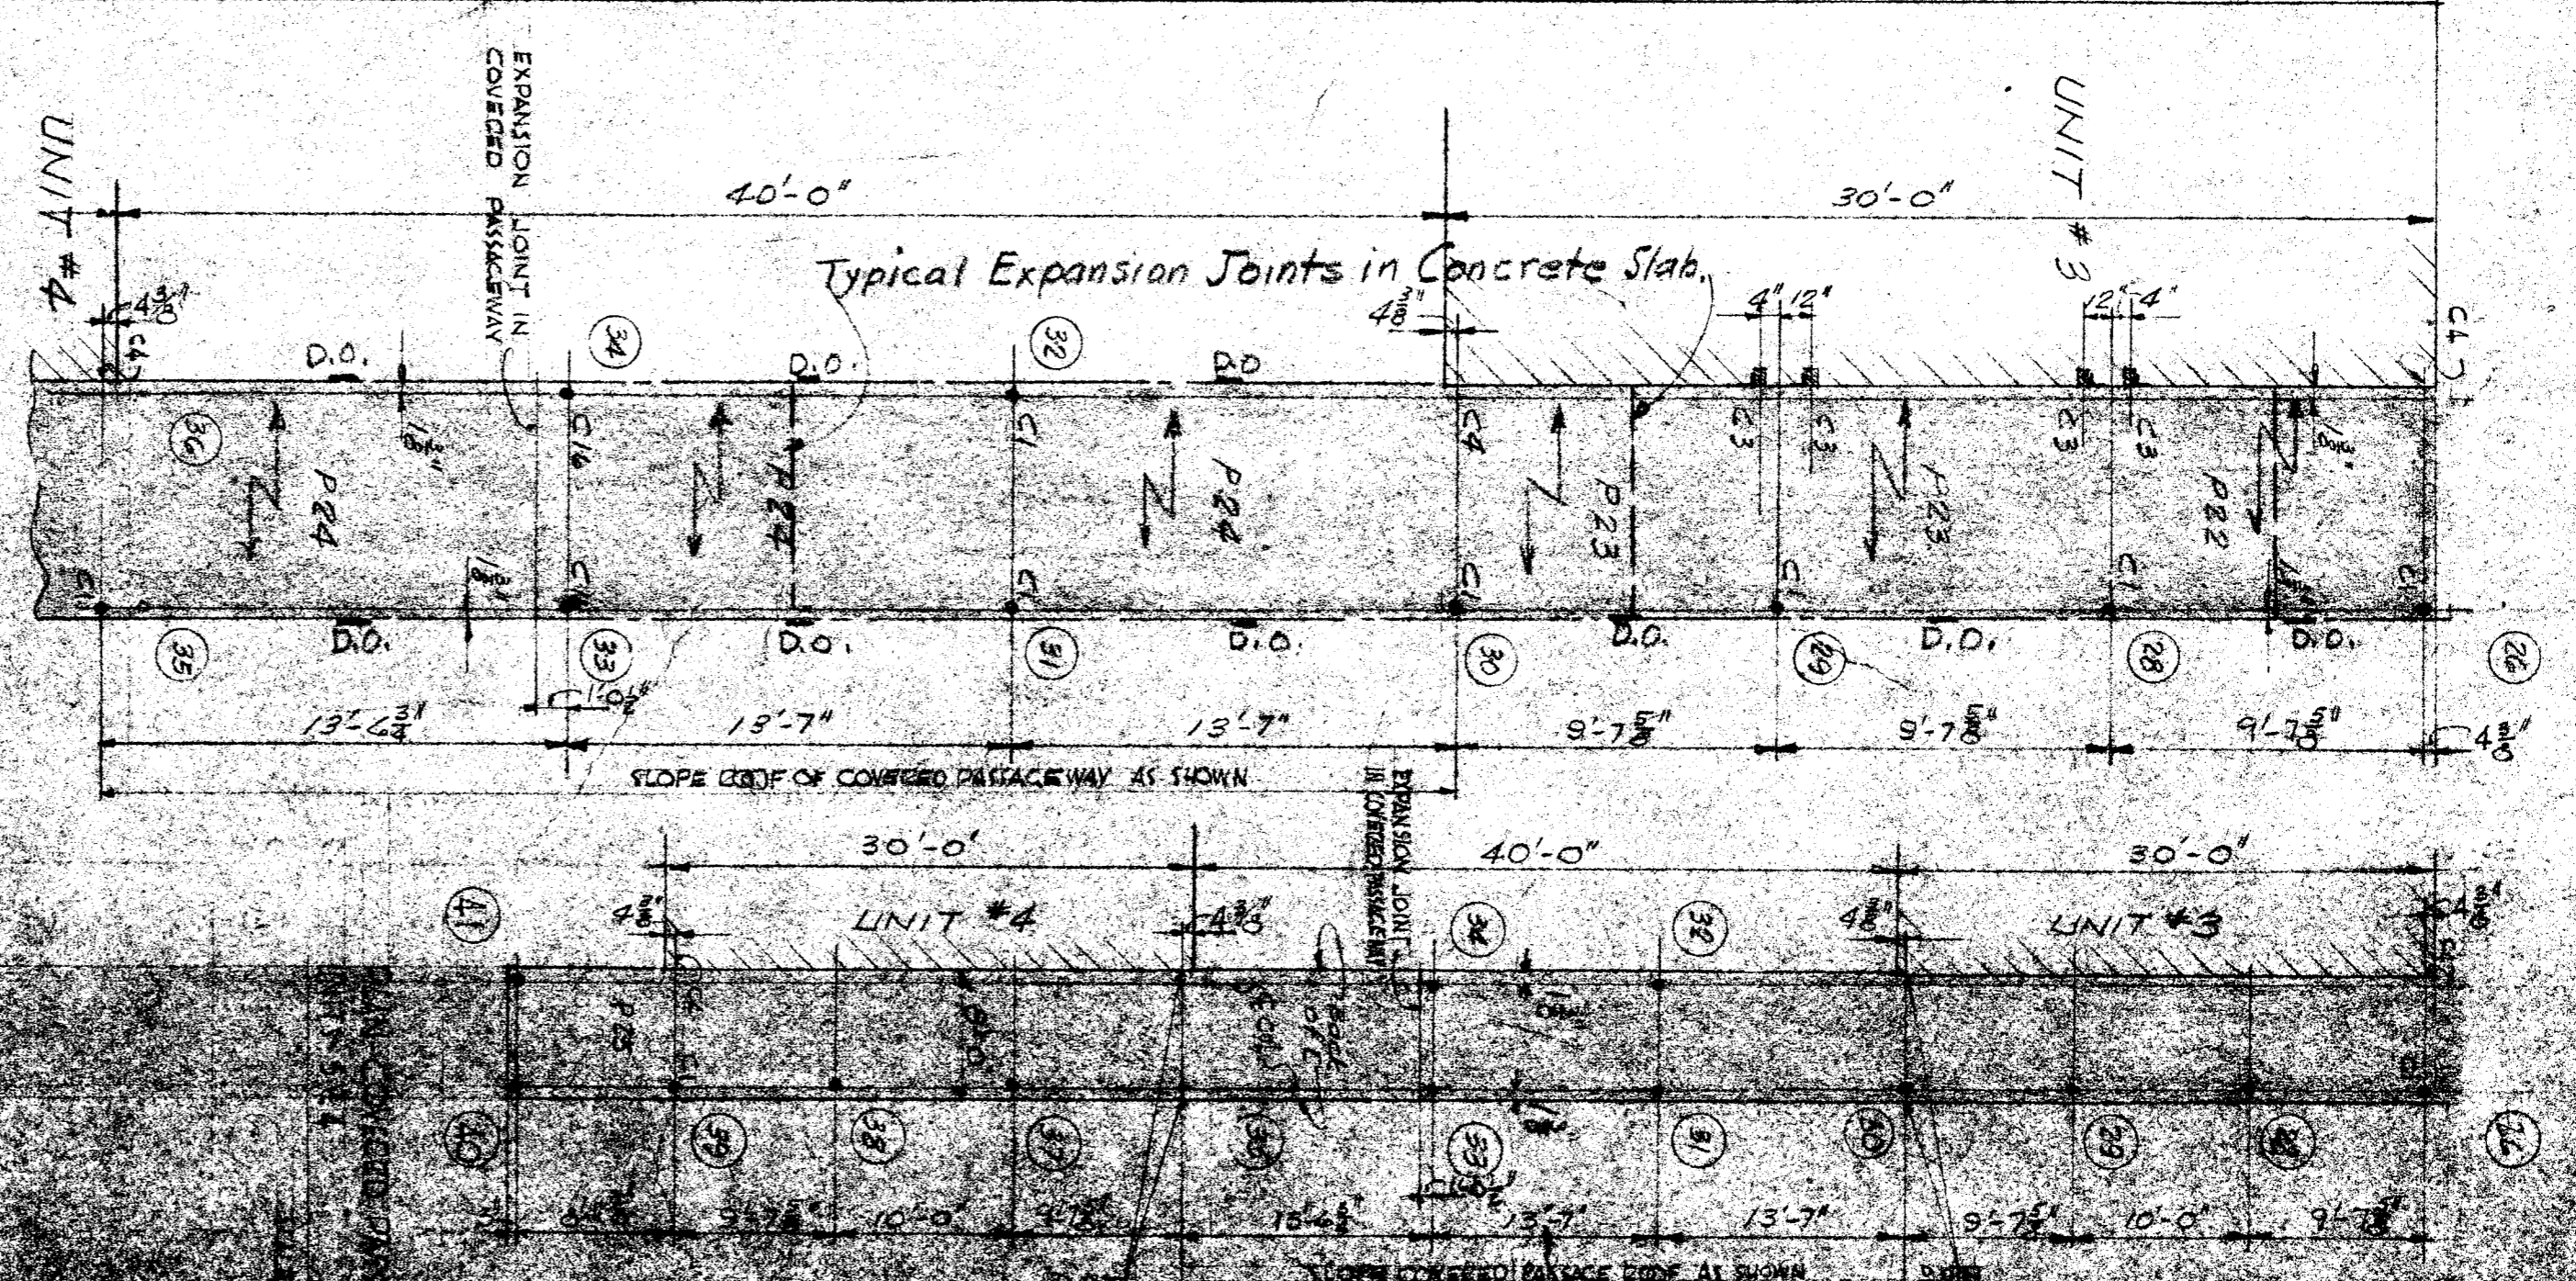 EXPANSION JOINT IN
COVERED PASSAGEWAY
UNIT #4
UNIT #3
40'-0"
30'-0"
Typical Expansion Joints in Concrete Slab.
4 3/8"
4 3/8"
4" 12"
12" 4"
C4
C4
34
32
D.O.
D.O.
D.O
36
1 3/8"
C16
C1
C4
C3
C3
C3
C3
1 3/8"
P24
P24
P24
P23
P23
P22
1 3/8"
C1
C1
C1
C1
C1
35
D.O.
33
D.O.
31
D.O.
30
D.O.
29
D.O.
28
D.O.
26
1'-0 1/2"
13'-6 3/4"
13'-7"
13'-7"
9'-7 5/8"
9'-7 5/8"
9'-7 5/8"
4 3/8"
SLOPE ROOF OF COVERED PASSAGEWAY AS SHOWN
EXPANSION JOINT
IN COVERED PASSAGEWAY
30'-0"
40'-0"
30'-0"
41
4 3/8"
UNIT #4
4 3/8"
34
32
4 3/8"
UNIT #3
4 3/8"
P25
C4
C1
40
39
38
37
35
33
31
30
29
28
26
9'-7 5/8"
10'-0"
9'-7 5/8"
13'-7"
13'-7"
9'-7 5/8"
10'-0"
9'-7 5/8"
SLOPE COVERED PASSAGE ROOF AS SHOWN